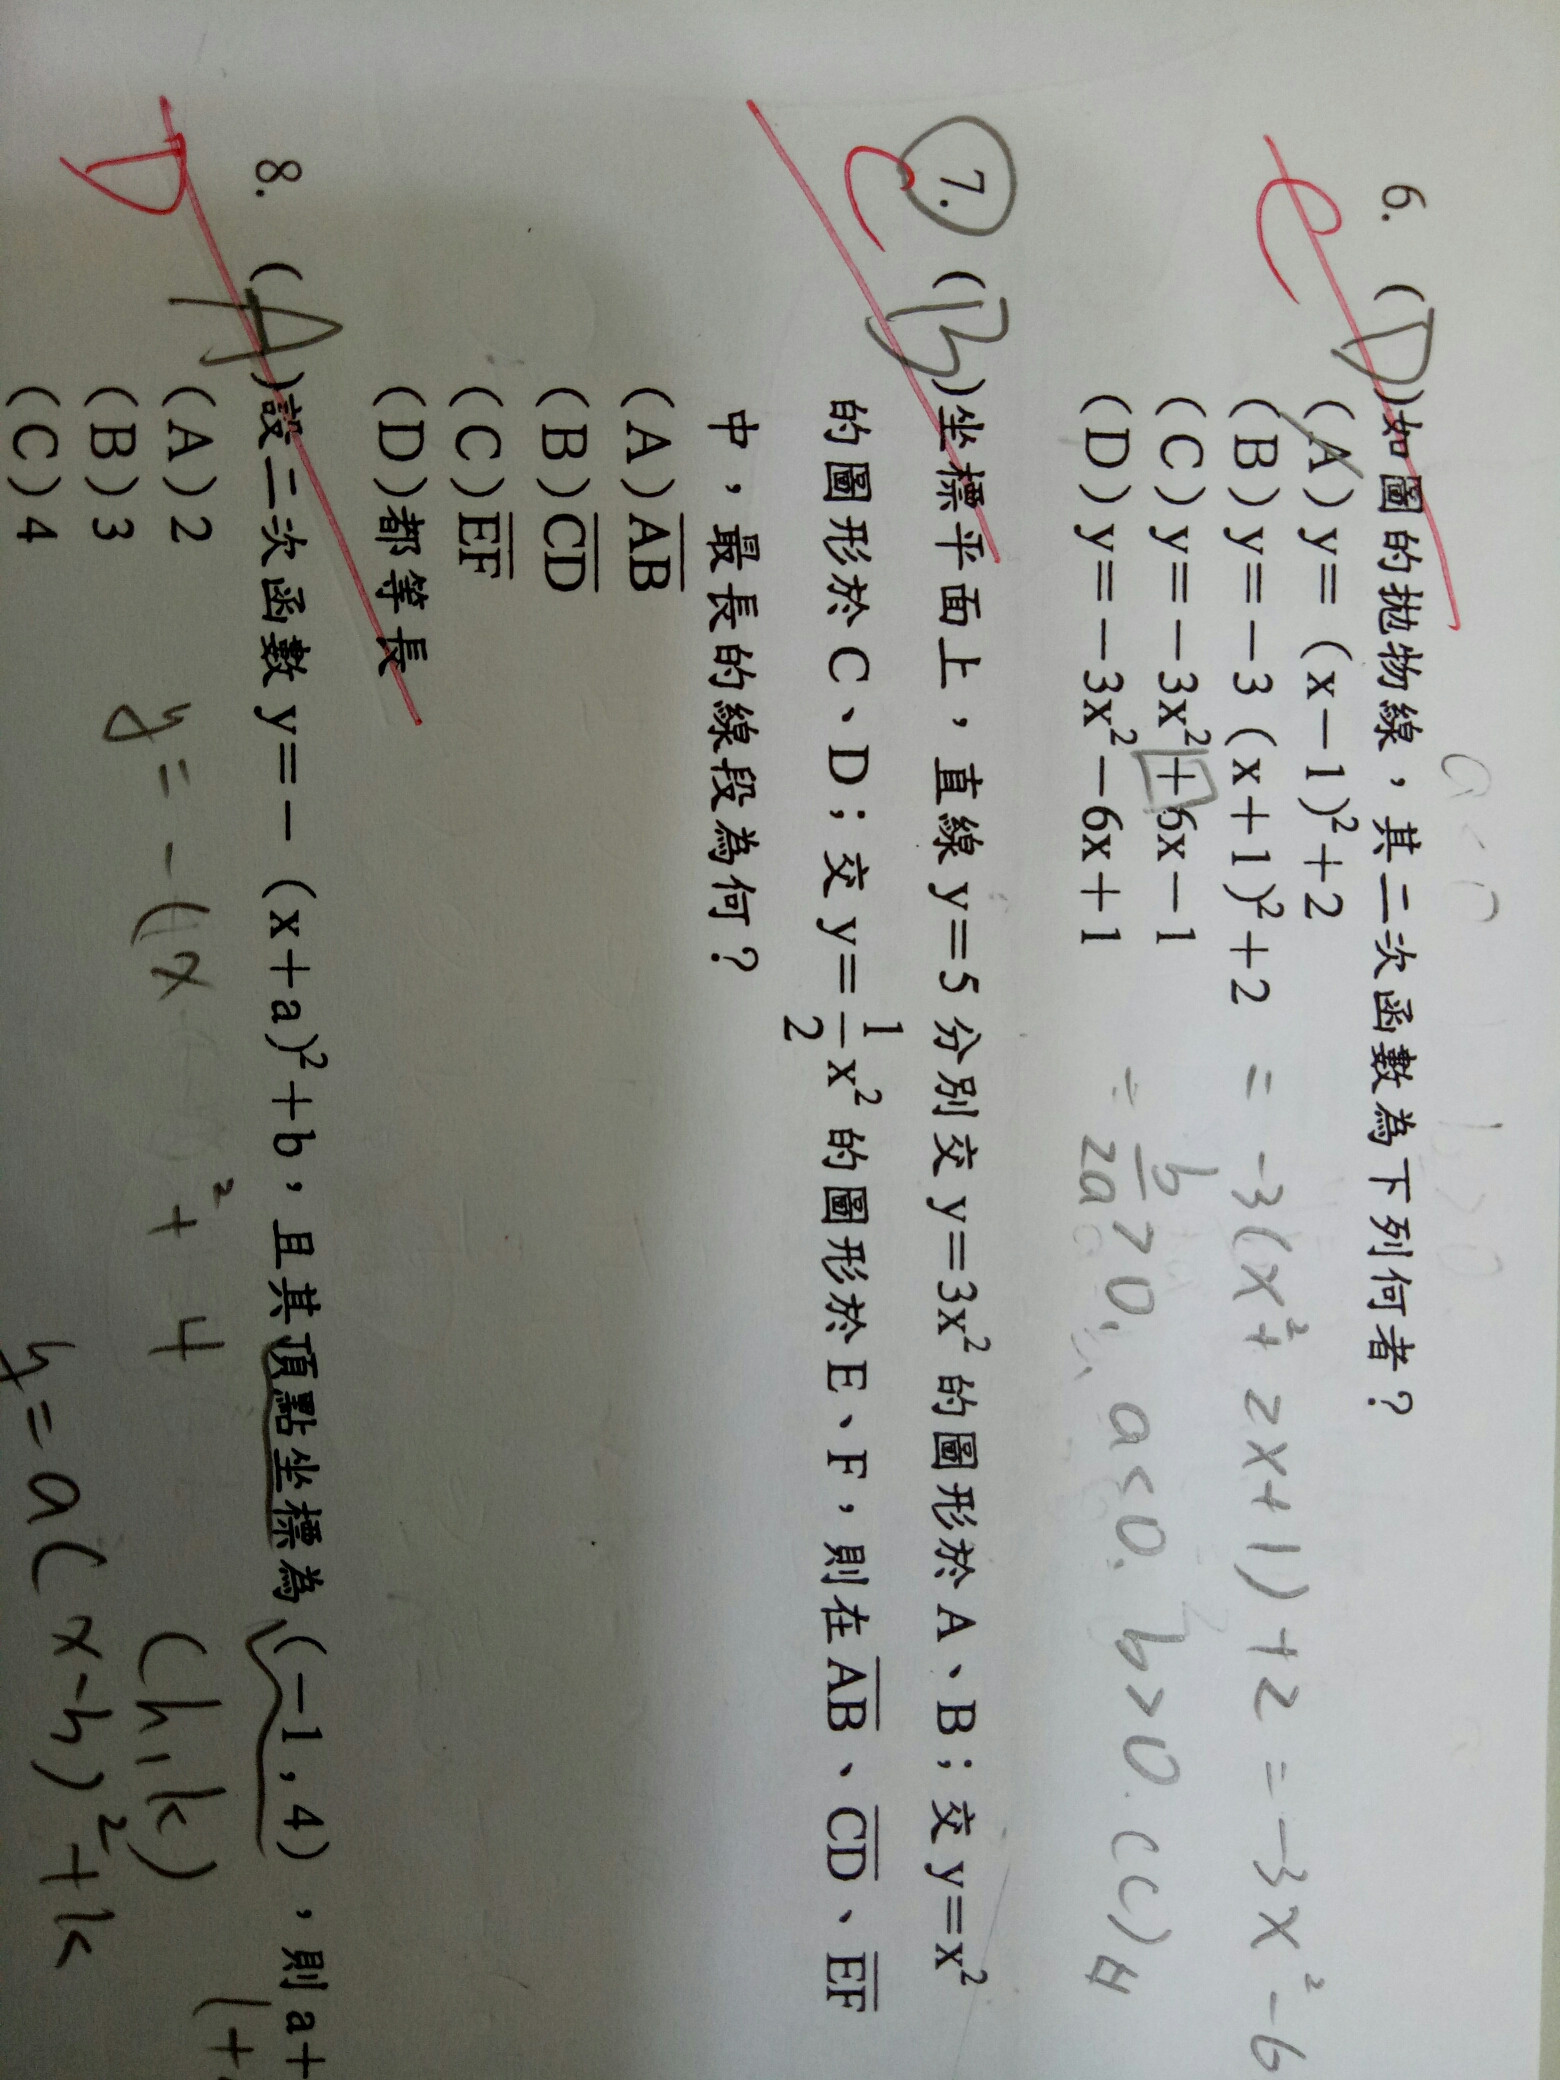 a<0 b>0
6. (D)如圖的拋物線，其二次函數為下列何者？
C
(A) y=(x－1)²＋2
(B) y=－3(x＋1)²＋2 = -3(x²+2x+1)+2 = -3x²-6
(C) y=－3x²＋6x－1
(D) y=－3x²－6x＋1 b/2a>0, a<0. b>0. (C)
7. (B)坐標平面上，直線 y=5 分別交 y=3x² 的圖形於 A、B；交 y=x²
C
的圖形於 C、D；交 y=1/2x² 的圖形於 E、F，則在AB、CD、EF
中，最長的線段為何？
(A)AB
(B)CD
(C)EF
(D)都等長
8. (A)設二次函數 y=－(x＋a)²＋b，且其頂點坐標為(－1，4)，則a＋
D
(A)2 y=-(x ²+4 (h,k) 1+
(B)3
(C)4 y=a(x-h)²+k